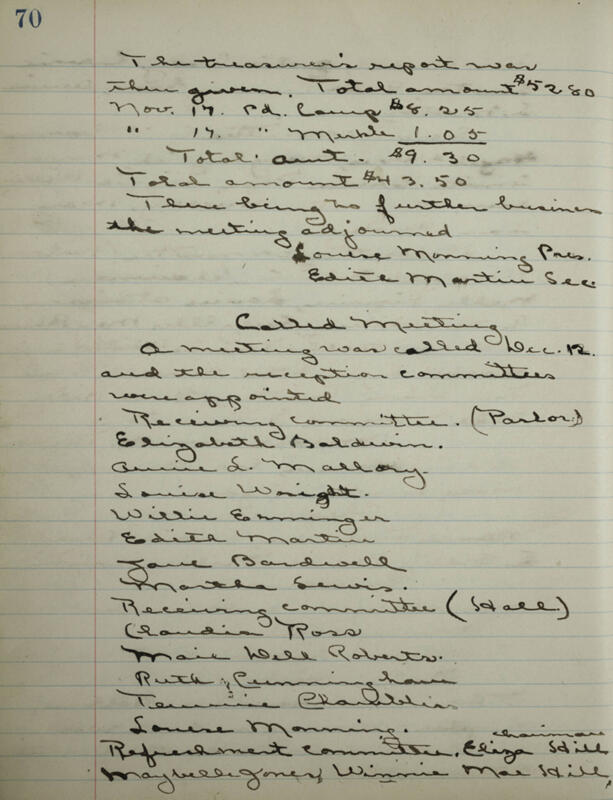 70
The treasurer's report was
then given. Total amount $52 80
Nov. 17. Pd. Camp $8. 25
" 17. " Merkle 1. 05
Total amt. $9. 30
Total amount $43. 50
There being no further business
the meeting adjourned
Louise Monning Pres.
Edith Martin Sec.
Called Meeting
A meeting was called Dec. 12.
and the reception committees
were appointed
Receiving committee. (Parlor)
Elizabeth Baldwin.
Annie L. Mallory.
Louise Wright.
Willie Erminger
Edith Martin
Jane Bardwell
Martha Lewis.
Receiving committee (Hall)
Claudia Ross
Maie Dell Roberts.
Ruth Cunningham
Chambliss
Louise Monning.
chairman
Refreshment committee. Eliza Hill
Maybelle Jones, Winnie Mae Hill,